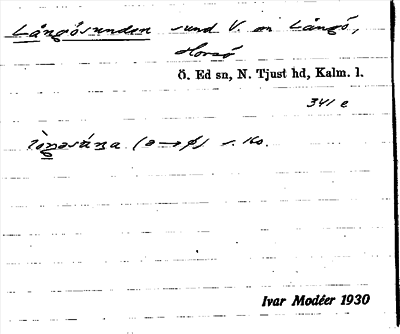 Långösunden sund V. om Långö,
Horsö
Ö. Ed sn, N. Tjust hd, Kalm. l.
341 e
s. Ko.
Ivar Modéer 1930